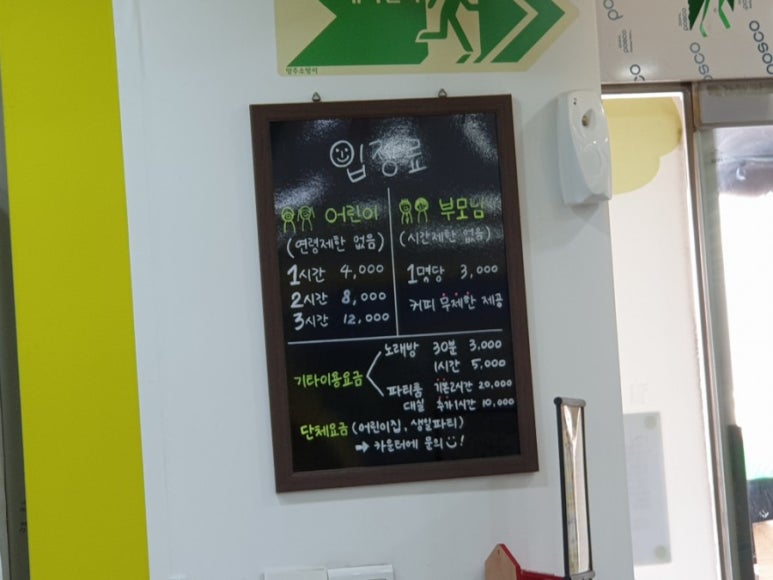 양주소방서
posco
posco
posco
입장료
어린이
(연령제한 없음)
1시간 4,000
2시간 8,000
3시간 12,000
부모님
(시간제한 없음)
1명당 3,000
커피 무제한 제공
기타이용요금
노래방 30분 3,000
1시간 5,000
파티룸 기본2시간 20,000
대실 추가1시간 10,000
단체요금 (어린이집, 생일파티)
→ 카운터에 문의 !